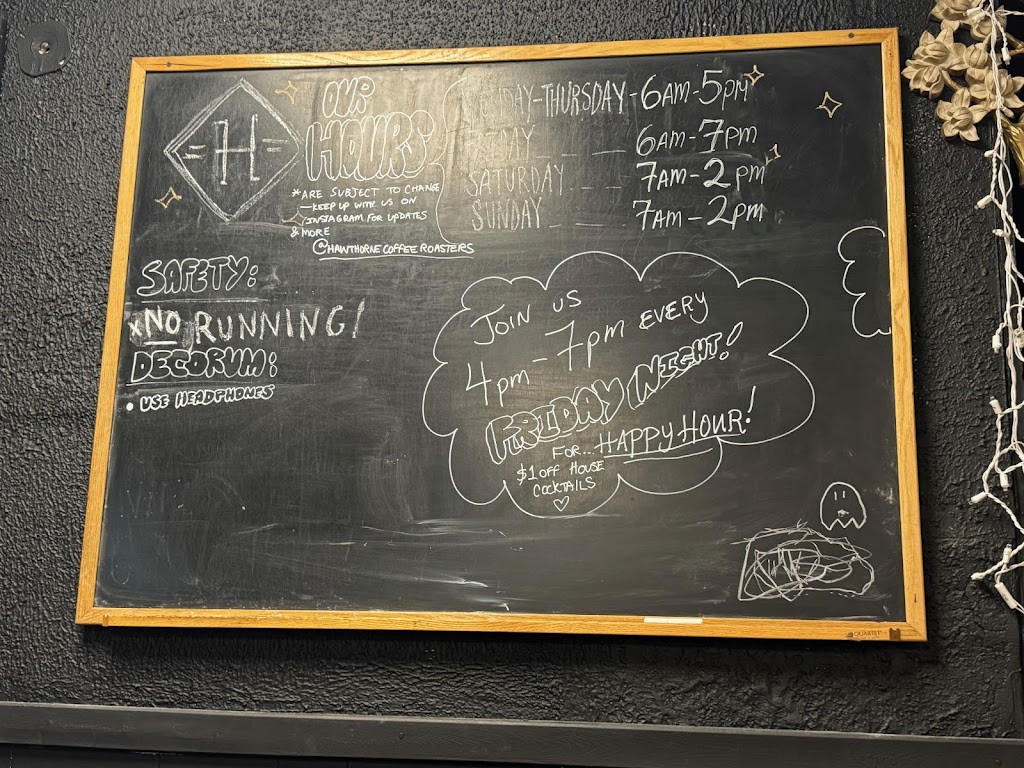 H
OUR
HOURS
*ARE SUBJECT TO CHANGE
—KEEP UP WITH US ON
INSTAGRAM FOR UPDATES
& MORE
@HAWTHORNECOFFEEROASTERS
DAY-THURSDAY-6AM-5PM
DAY_ _ _ 6AM-7PM
SATURDAY_ _ _ 7AM-2PM
SUNDAY_ _ _ 7AM-2PM
SAFETY:
xNO RUNNING!
DECORUM:
• USE HEADPHONES
JOIN US
4pm-7pm EVERY
FRIDAY NIGHT!
FOR... HAPPY HOUR!
$1 OFF HOUSE
COCKTAILS
QUARTET